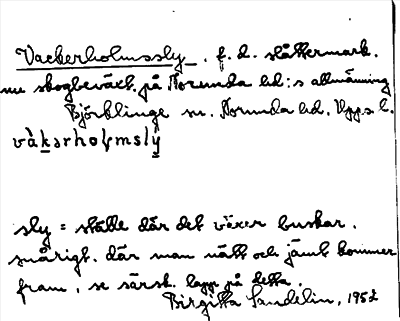 Vackerholmssly, f. d. slåttermark,
nu skogbeväxt, på Norunda hd:s allmänning
Björklinge sn. Norunda hd. Upps. l.
vàkərholmslý
sly = ställe där det växer buskar,
snårigt, där man nätt och jämt kommer
fram, se särsk. lapp på detta.
Birgitta Sandelin, 1952